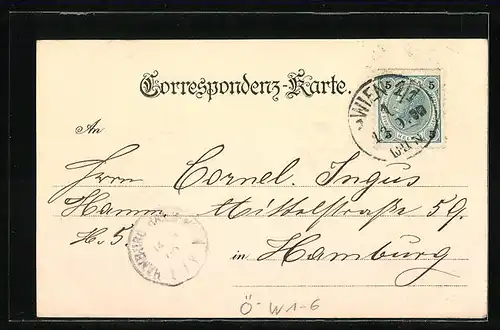 Correspondenz-Karte.
5 5
WIEN 1/1
An
Herrn Cornel. Ingus
Hamm, Mittelstraße 59.
H. 5.
HAMBURG
in Hamburg
Ö-W1-6